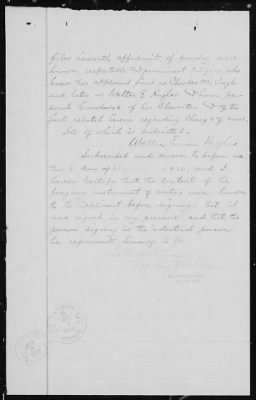 files herewith affidavit of sundry well
known, respectable & prominent citizens who
knew this applicant first as Charles M. Pugh
and later as Walter E. Hughes & have per-
sonal knowledge of his Character & of the
facts related herein regarding Change of name.
All of which is submitted.
Walter Hughes
Subscribed and sworn to before me
this day of 1910, and I
hereby certify that the contents of the
foregoing instrument of writing were known
to the applicant before signing; that it
was signed in my presence and that the
person signing is the identical person
he represents himself to be.